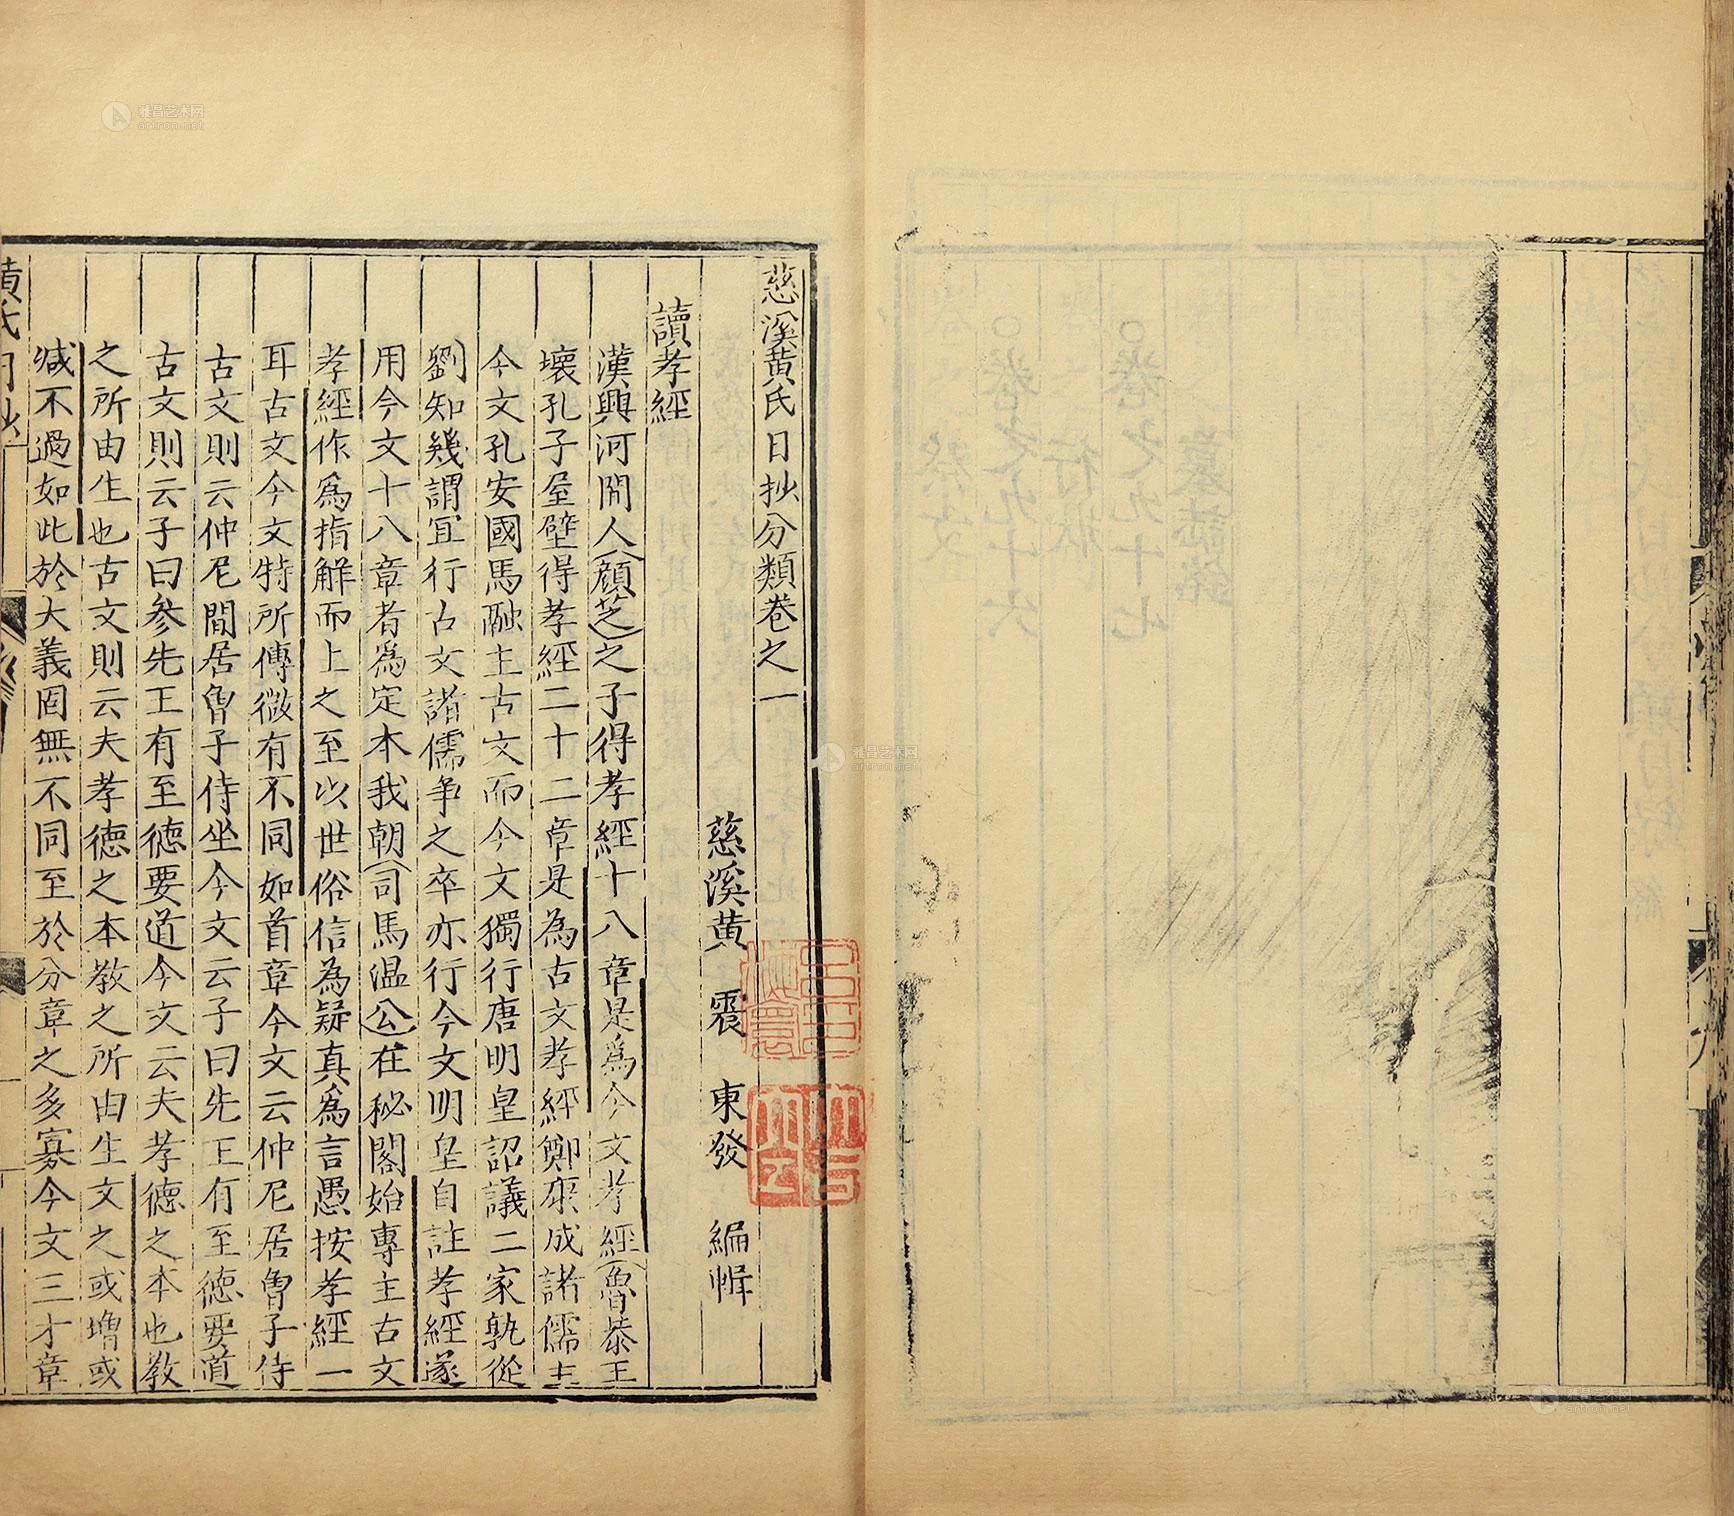 慈溪黄氏日抄分類卷之一
慈溪黄震東發編輯
讀孝經
漢興河間人顔芝之子得孝經十八章是爲今文孝經魯恭王
壞孔子屋壁得孝經二十二章是為古文孝經鄭康成諸儒主
今文孔安國馬融主古文而今文獨行唐明皇詔議二家孰從
劉知幾謂宜行古文諸儒争之卒亦行今文明皇自註孝經遂
用今文十八章者為定本我朝司馬温公在秘閣始專主古文
孝經作爲指解而上之至以世俗信為疑真爲言愚按孝經一
耳古文今文特所傳微有不同如首章今文云仲尼居曾子侍
古文則云仲尼閒居曾子侍坐今文云子曰先王有至德要道
古文則云子曰參先王有至德要道今文云夫孝德之本也教
之所由生也古文則云夫孝德之本教之所由生文之或增或
减不過如此於大義固無不同至於分章之多寡今文三才章
黄氏日抄
雅昌艺术网
artron.net